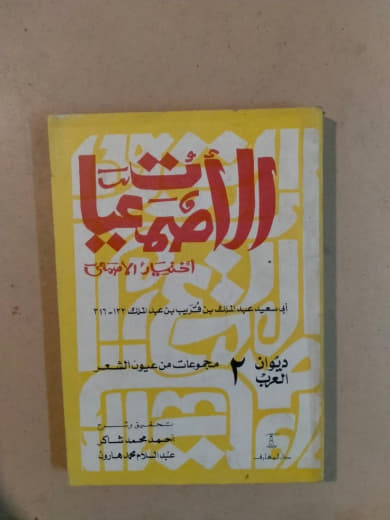 الأصمعيات
اختيار الأصمعي
أبي سعيد عبد الملك بن قريب بن عبد الملك ١٢٢ - ٢١٦
ديوان العرب
٢
مجموعات من عيون الشعر
تحقيق وشرح
أحمد محمد شاكر
عبد السلام محمد هارون
دار المعارف